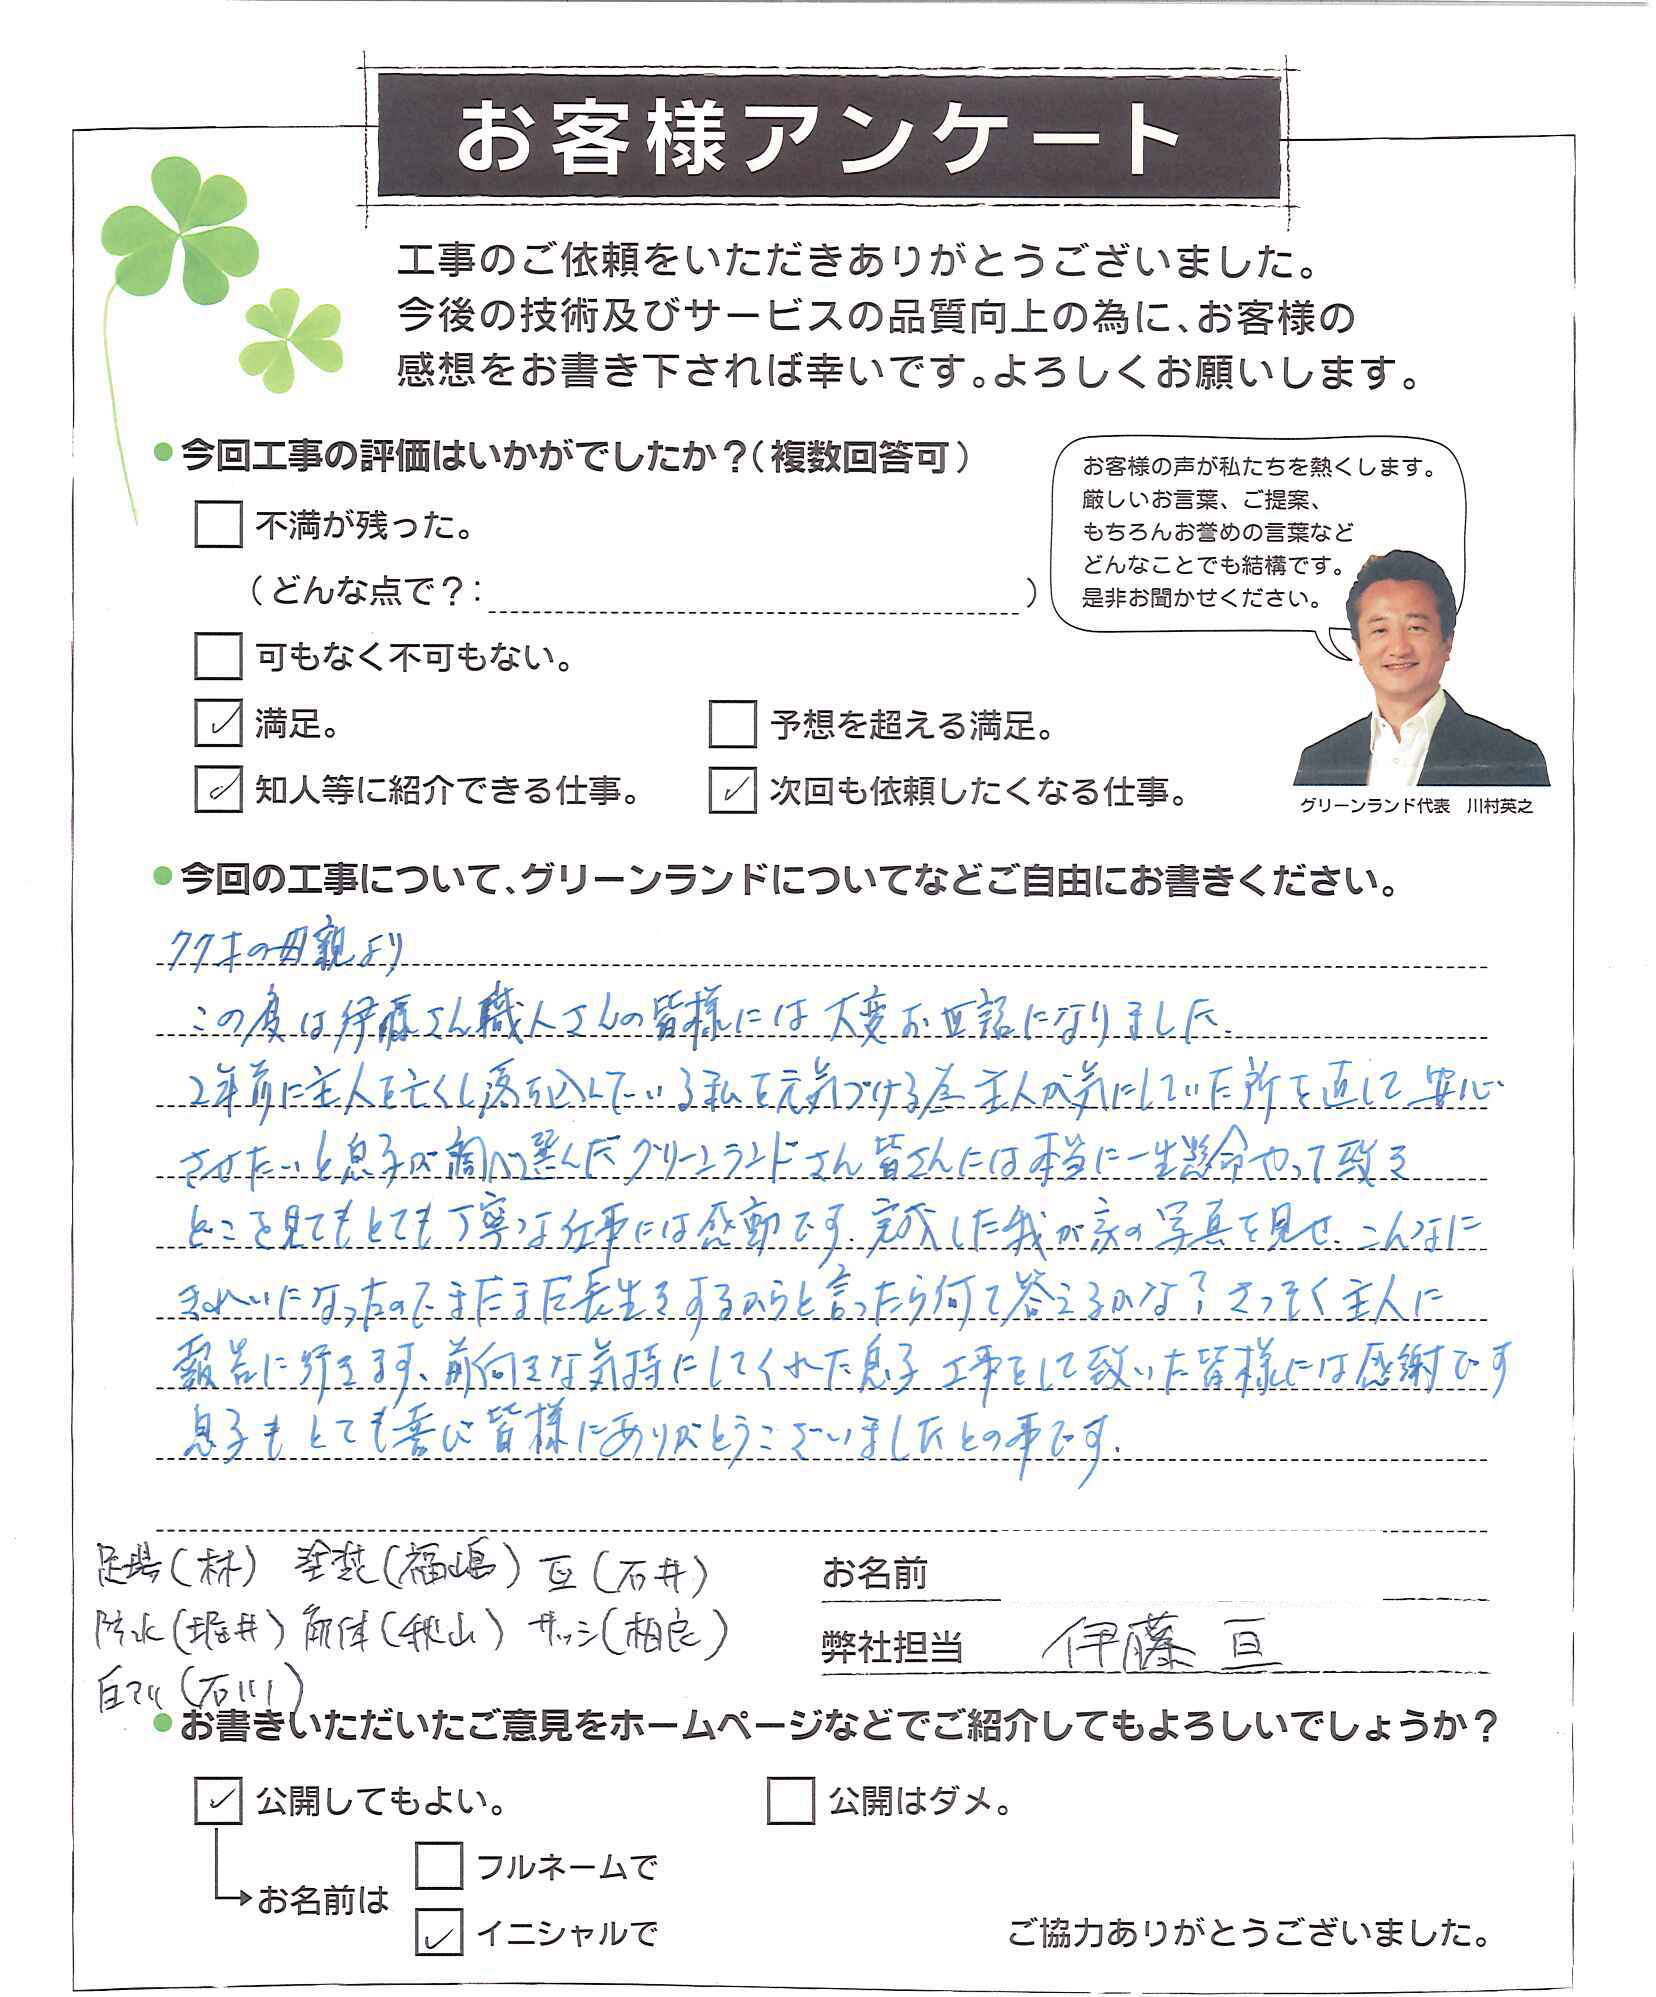 お客様アンケート
工事のご依頼をいただきありがとうございました。
今後の技術及びサービスの品質向上の為に、お客様の
感想をお書き下されば幸いです。よろしくお願いします。
●今回工事の評価はいかがでしたか？（複数回答可）
不満が残った。
（どんな点で？：　）
可もなく不可もない。
満足。
予想を超える満足。
知人等に紹介できる仕事。
次回も依頼したくなる仕事。
お客様の声が私たちを熱くします。
厳しいお言葉、ご提案、
もちろんお誉めの言葉など
どんなことでも結構です。
是非お聞かせください。
グリーンランド代表　川村英之
●今回の工事について、グリーンランドについてなどご自由にお書きください。
77才の母親より
この度は伊藤さん職人さんの皆様には大変お世話になりました.
2年前に主人を亡くし落ち込んでいる私を元気づける為主人が気にしていた所を直して安心
させたいと息子が調べ選んだグリーンランドさん皆さんには本当に一生懸命やって致き
どこを見てもとても丁寧な仕事には感動です.完成した我が家の写真を見せ.こんなに
きれいになったのでまだまだ長生きするからと言ったら何て答えるかな?さっそく主人に
報告に行きます、前向きな気持にしてくれた息子 工事をして致いた皆様には感謝です
息子もとても喜び皆様にありがとうございましたとの事です.
足場(林) 塗装(福嶋) 瓦(石井)
防水(堀井) 解体(秋山) サッシ(相良)
白アリ(石川)
お名前
弊社担当 伊藤 亘
●お書きいただいたご意見をホームページなどでご紹介してもよろしいでしょうか？
公開してもよい。
公開はダメ。
お名前は
フルネームで
イニシャルで
ご協力ありがとうございました。